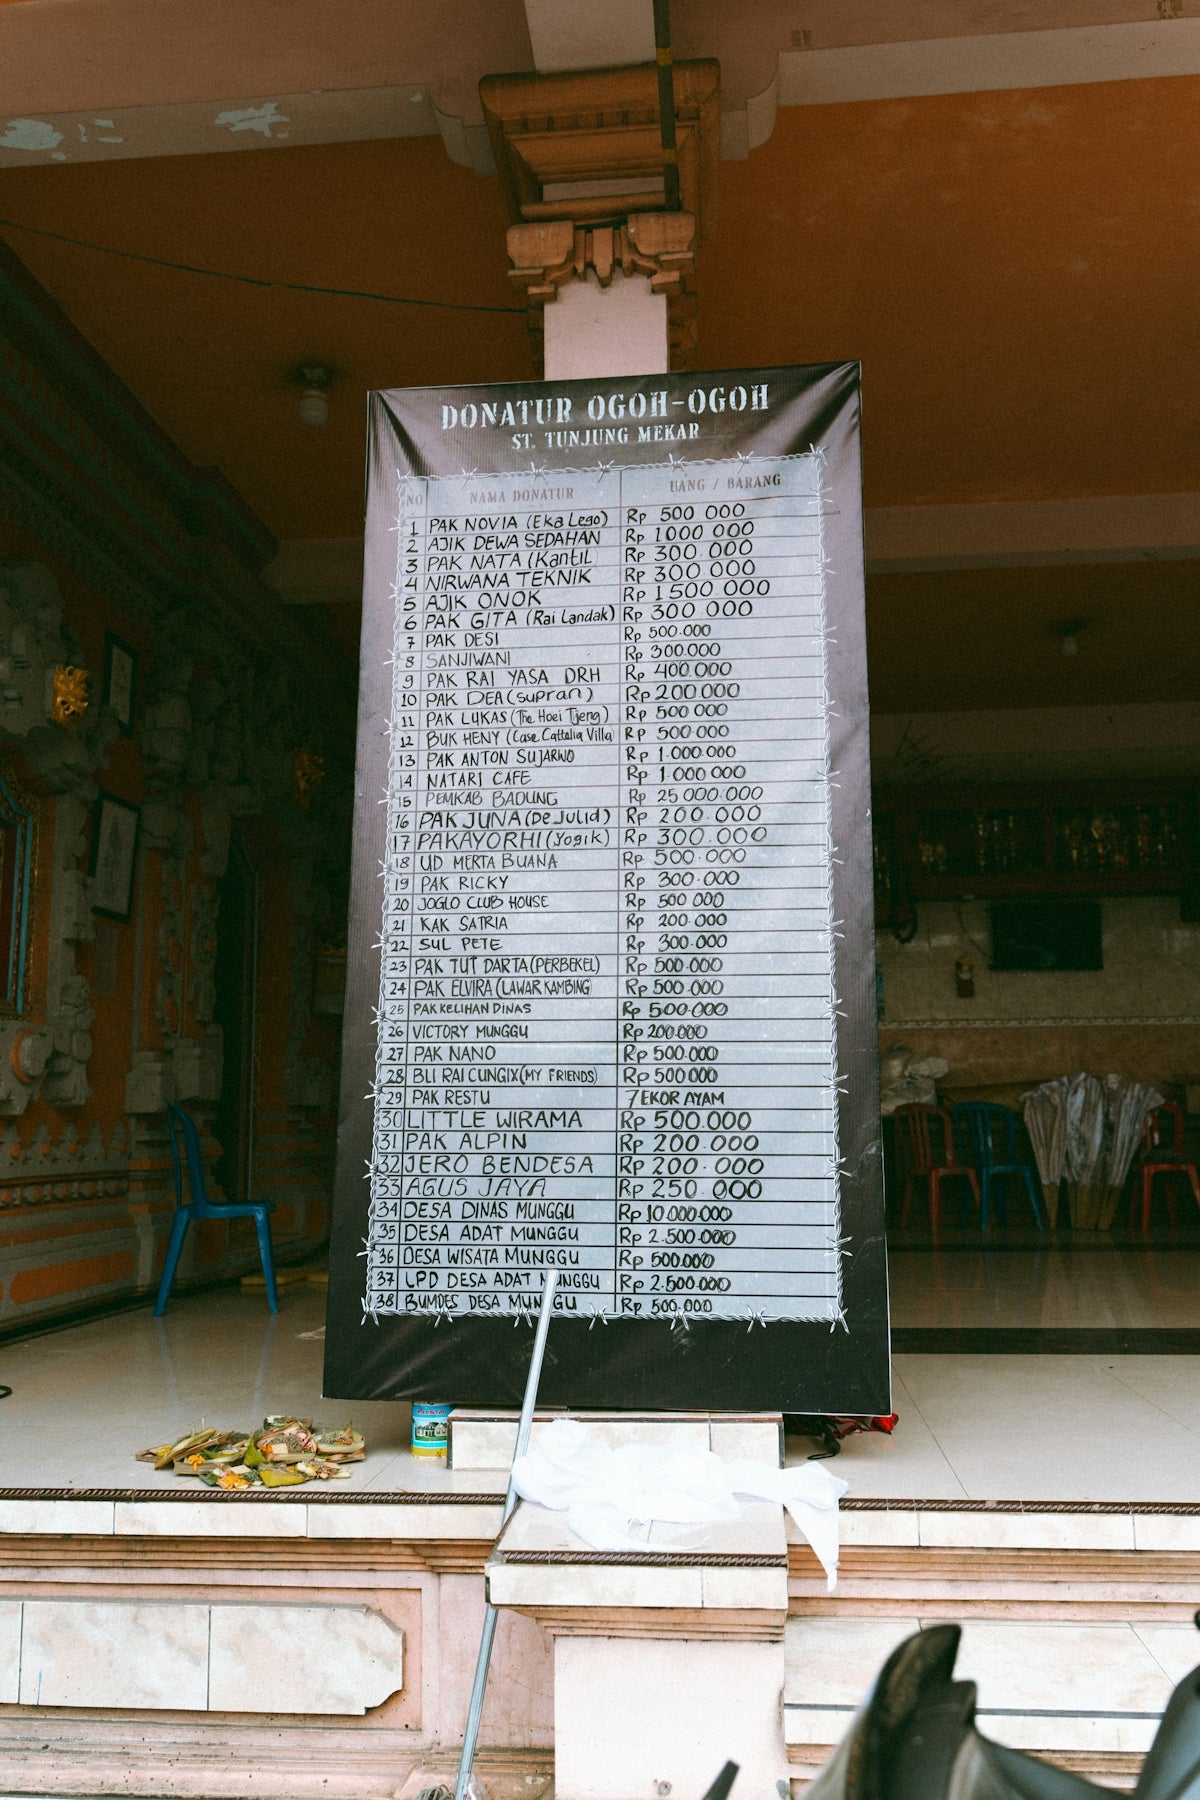 DONATUR OGOH-OGOH
ST. TUNJUNG MEKAR
NO NAMA DONATUR UANG / BARANG
1 PAK NOVIA (Eka Lego) Rp 500 000
2 AJIK DEWA SEDAHAN Rp 1000 000
3 PAK NATA (Kantil Rp 300.000
4 NIRWANA TEKNIK Rp 300 000
5 AJIK ONOK Rp 1500 000
6 PAK GITA (Rai Landak) Rp 300 000
7 PAK DESI Rp 500.000
8 SANJIWANI Rp 300.000
9 PAK RAI YASA DRH Rp 400.000
10 PAK DEA (supran) Rp 200 000
11 PAK LUKAS (The Hoei Tjeng) Rp 500 000
12 BUK HENY (Case Cattelia Villa Rp 500 000
13 PAK ANTON SUJARWO Rp 1.000.000
14 NATARI CAFE Rp 1.000 000
15 PEMKAB BADUNG Rp 25 000.000
16 PAK JUNA (De Julid) Rp 200.000
17 PAKAYORHI (Yogik) Rp 300.000
18 UD MERTA BUANA Rp 500.000
19 PAK RICKY Rp 300.000
20 JOGLO CLUB HOUSE Rp 500 000
21 KAK SATRIA Rp 200.000
22 SUL PETE Rp 300.000
23 PAK TUT DARTA (PERBEKEL) Rp 500.000
24 PAK ELVIRA (LAWAR KAMBING) Rp 500.000
25 PAK KELIHAN DINAS Rp 500.000
26 VICTORY MUNGGU Rp 200.000
27 PAK NANO Rp 500.000
28 BLI RAI CUNGIX (MY FRIENDS) Rp 500 000
29 PAK RESTU 7 EKOR AYAM
30 LITTLE WIRAMA Rp 500.000
31 PAK ALPIN Rp 200.000
32 JERO BENDESA Rp 200.000
33 AGUS JAYA Rp 250.000
34 DESA DINAS MUNGGU Rp 10.000.000
35 DESA ADAT MUNGGU Rp 2.500.000
36 DESA WISATA MUNGGU Rp 500.000
37 LPD DESA ADAT MUNGGU Rp 2.500.000
38 BUMDES DESA MUNGGU Rp 500.000